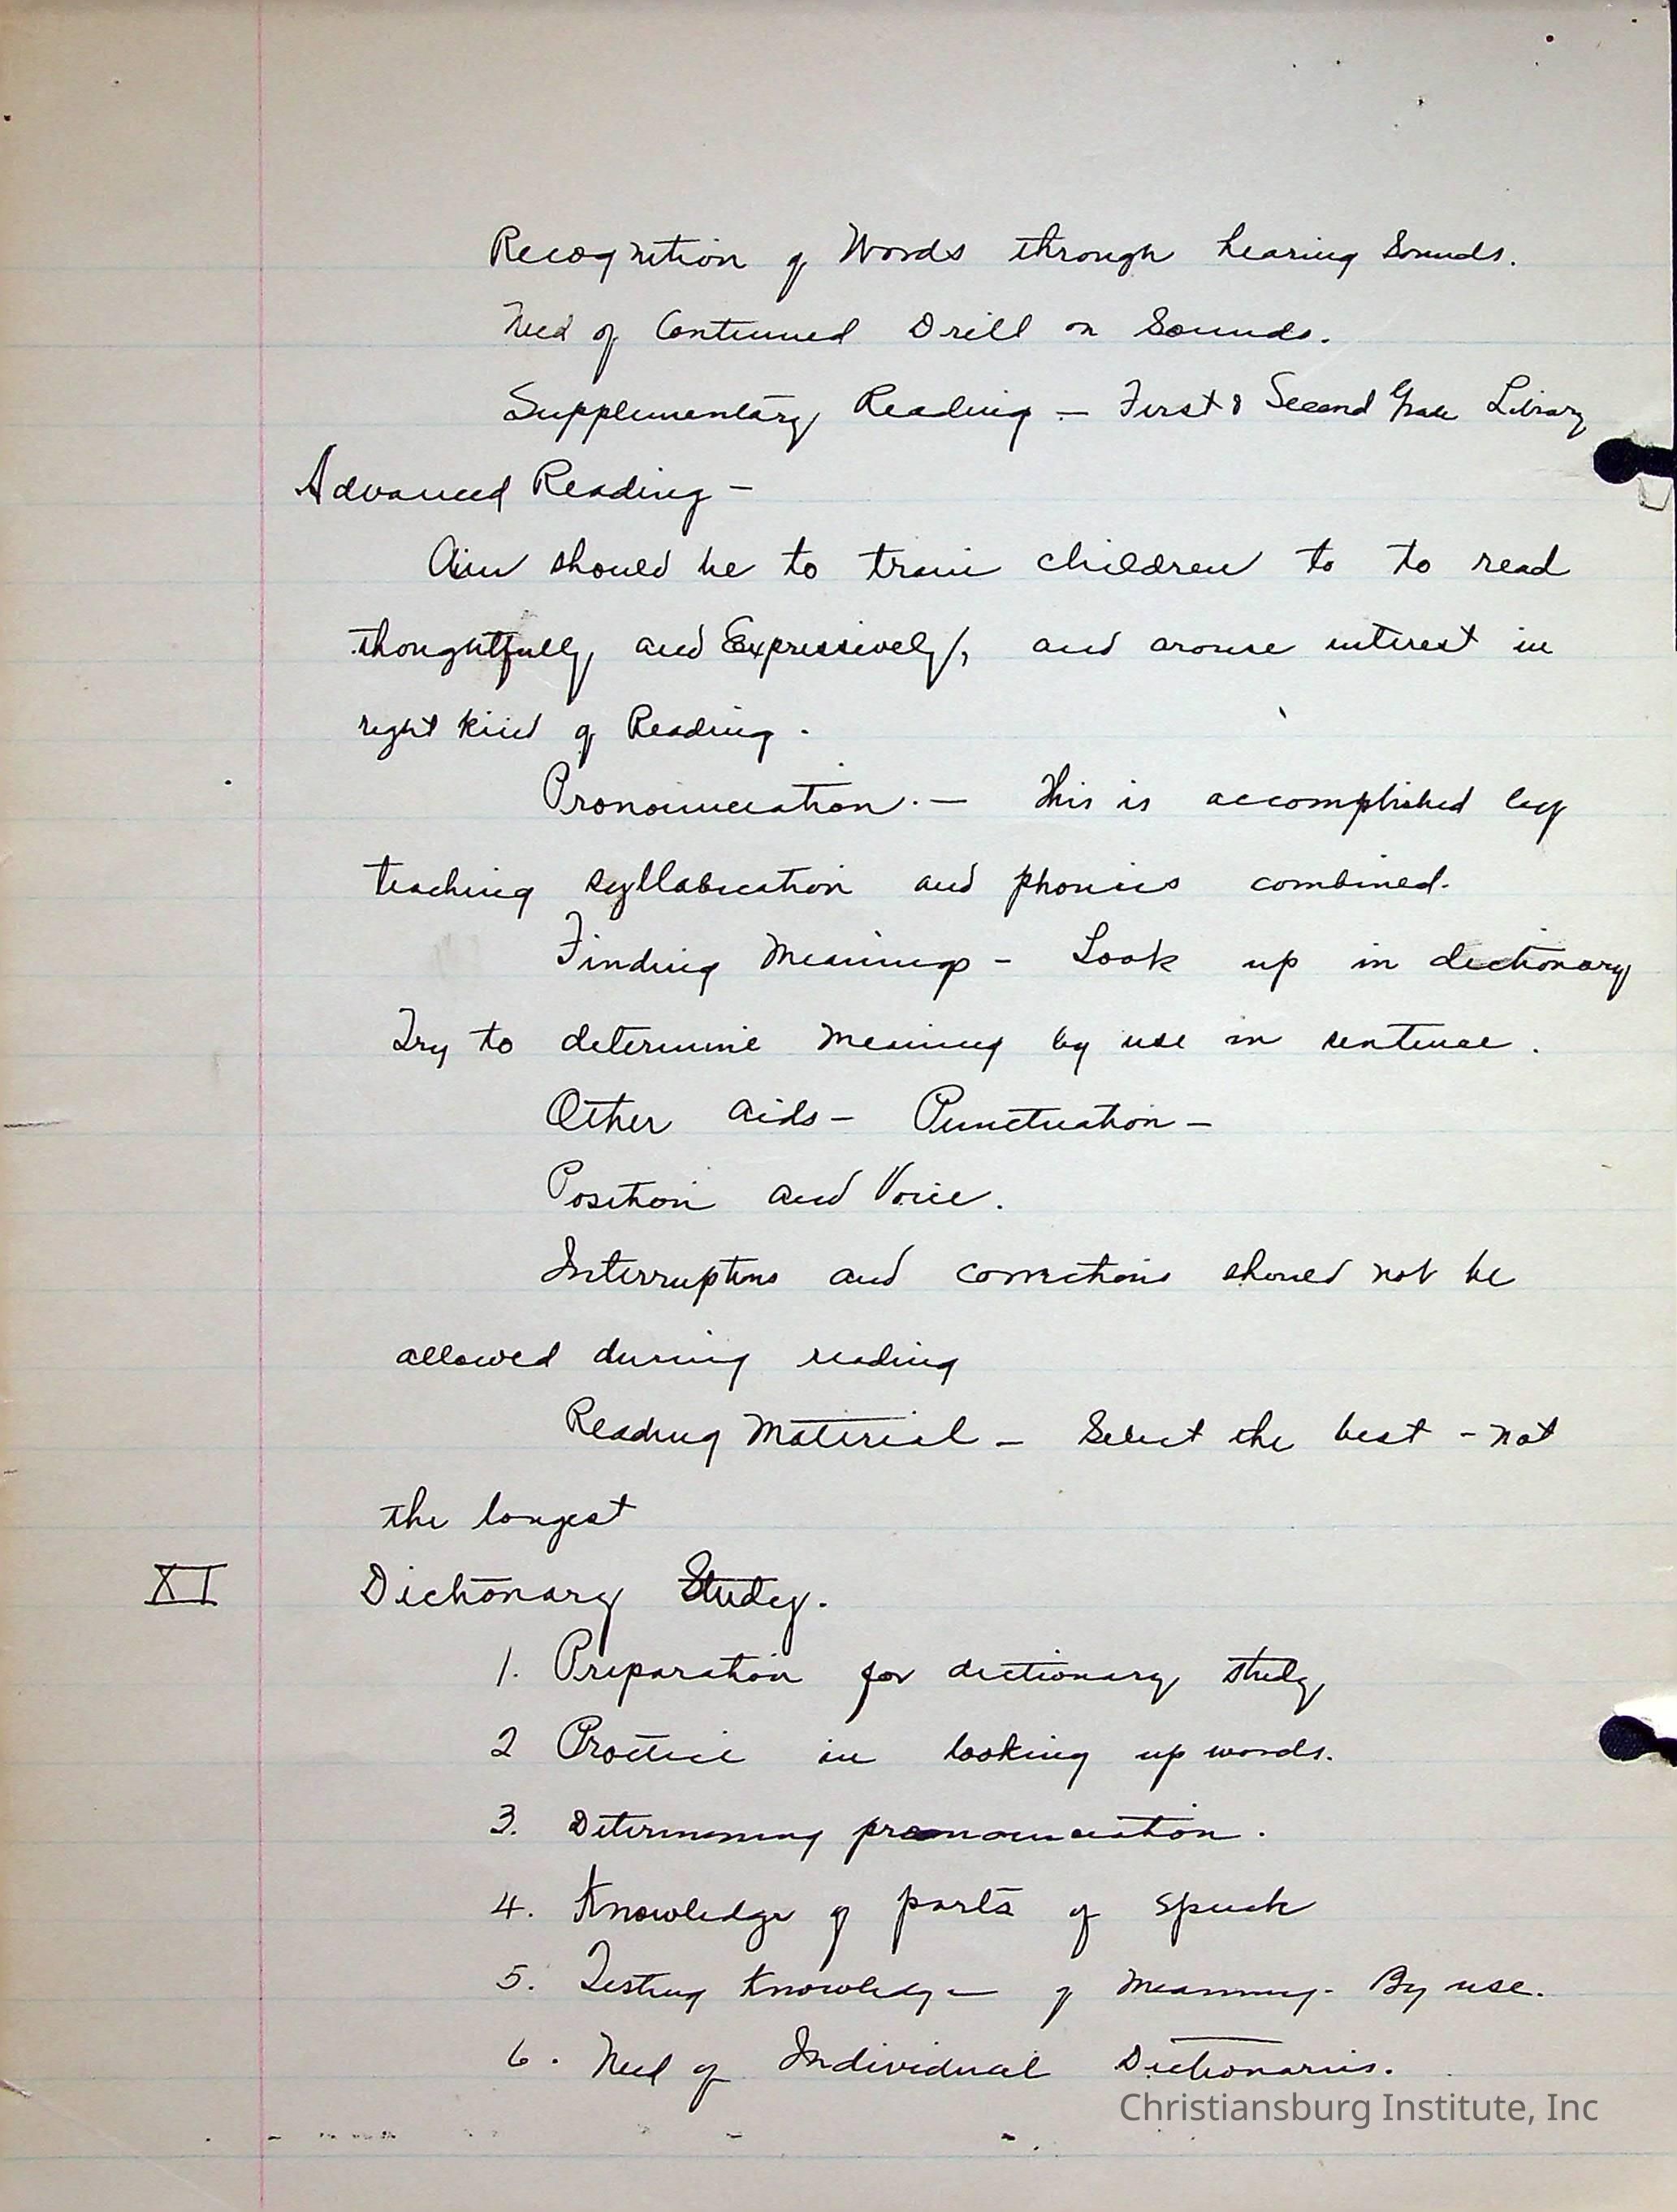 Recognition of Words through hearing Sounds.
Need of Continued Drill on Sounds.
Supplementary Reading – First & Second Grade Library
Advanced Reading –
Aim should be to train children to to read
thoughtfully and Expressively, and arouse interest in
right kind of Reading.
Pronounciation. – This is accomplished by
teaching syllabication and phonics combined.
Finding Meanings – Look up in dictionary
Try to determine meaning by use in sentence.
Other aids – Punctuation –
Position and Voice.
Interruptions and corrections should not be
allowed during reading
Reading Material – Select the best – not
the longest
XI Dictionary Study.
1. Preparation for dictionary study
2 Practice in looking up words.
3. Determining pronounciation.
4. Knowledge of parts of speech
5. Testing Knowledge of Meaning. By use.
6. Need of Individual Dictionaries.
Christiansburg Institute, Inc